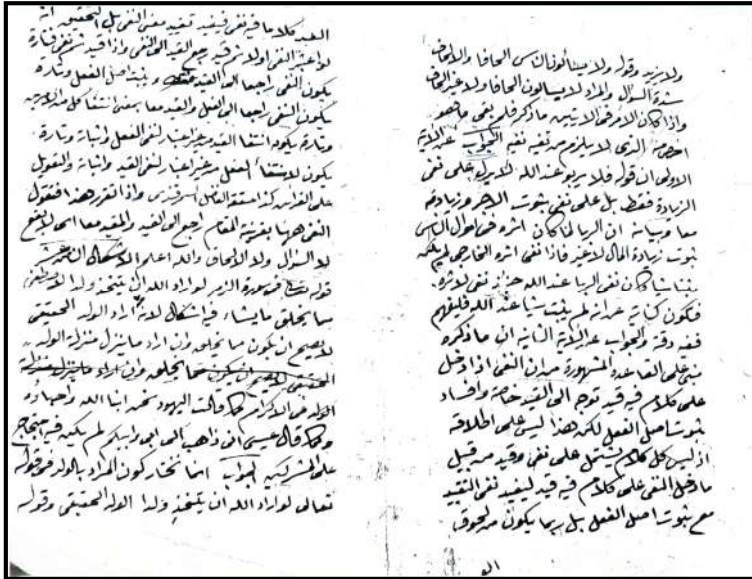 ولا يزيد وقوله ولا يسألون الناس الحافا والالحاف
شدة السؤال والمراد لا يسألون الحافا ولا غير الحاف
واذا كان الامر فى الايتين ما ذكر فلم نفى ما هو
اخص مع الذى لا يلزم من نفيه نفيه الجواب عن الاية
الاولى ان قوله فلا يربو عند الله لا يدل على نفى
الزيادة فقط بل على نفى ثبوت الاجر وزيادته
معا وبيانه ان الربا لما كان اثره فى اموال الناس
ثبوت زيادة المال لا غير فاذا نفى اثره الخارجى لم يكن
شيئا كان نفى الربا عند الله نفى لاثره
فتكون كناية عن انه لم يثبت شيا عند الله فليفهم
ففيه دقة والجواب عن الاية الثانية ان ما ذكره
مبنى على القاعدة المشهورة من ان النفى اذا دخل
على كلام فيه قيد توجه الى القيد خاصة وافساد
ثبوت اصل الفعل لكن هذا ليس على اطلاقه
اذ ليس كل كلام يشتمل على نفى وقيد من قبيل
ما دخل النفى على كلام فيه قيد ليفيد نفى التقييد
مع ثبوت اصل الفعل بل ربما يكون من لحوق
القيد كلاما فيه نفى فيفيد تقييد معنى النفى بل التحقيق انه
لو اعتبر النفى اولا ثم قيد رجع القيد الى النفى واذا قيد ثم نفى فتارة
يكون النفى راجعا الى القيد ويثبت اصل الفعل وتارة
يكون النفى راجعا الى الفعل والقيد معا بمعنى انتفا كل من الامرين
وتارة يكون انتفا القيد من غير اعتبار لنفى الفعل واثباته وتارة
يكون لانتفاء الفعل من غير اعتبار لنفى القيد واثباته والتعويل
على القرائن كذا حققه الفاضل السمرقندى واذا تقرر هذا فنقول
النفى ههنا بقرينة المقام راجع الى القيد والمقيد معا اى لا يقع
لا السؤال ولا الالحاف والله اعلم الاشكال
قوله تعالى فى سورة الزمر لو اراد الله ان يتخذ ولدا لاصطفى
مما يخلق ما يشاء فيه اشكال لانه ان اراد الولد الحقيقى
لا يصح ان يكون مما يخلق وان اراد ما ينزل منزلة الولد
الولد فى الاكرام كما قالت اليهود نحن ابنا الله واحباؤه
وكما قال عيسى انى ذاهب الى ابى وابيكم لم يكن فيه احتجاج
على المشركين الجواب انما نختار كون المراد بالولد فى قوله
تعالى لو اراد الله ان يتخذ ولدا الولد الحقيقى وقوله